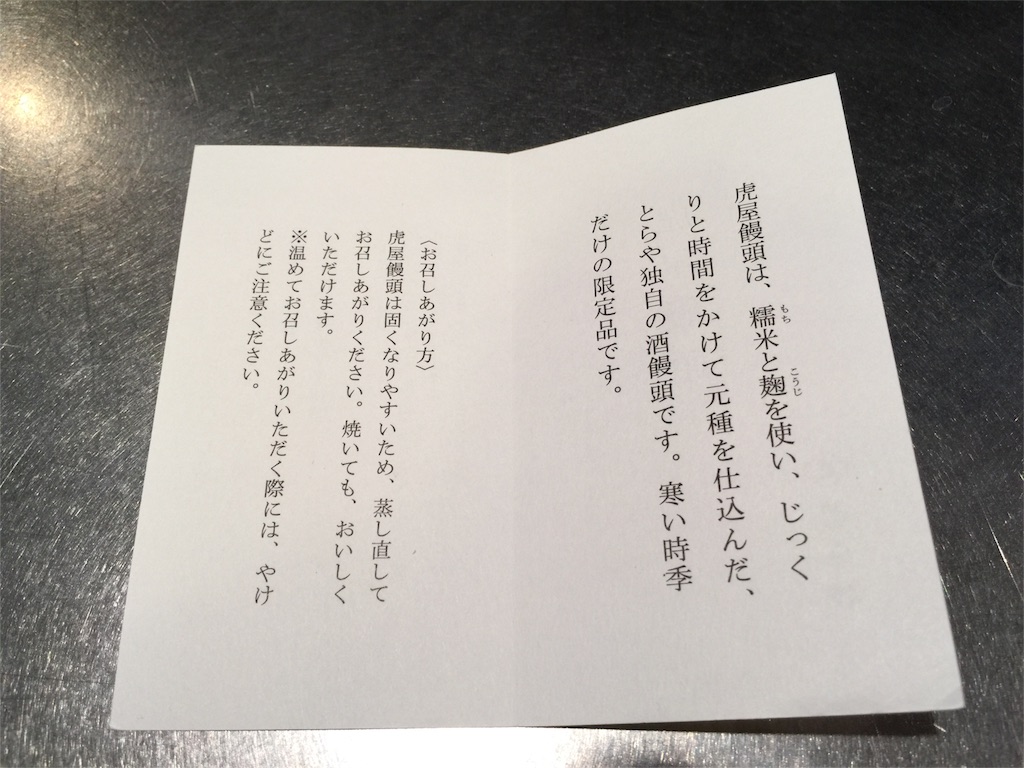 虎屋饅頭は、糯米と麹を使い、じっく
もち
こうじ
りと時間をかけて元種を仕込んだ、
とらや独自の酒饅頭です。寒い時季
だけの限定品です。
〈お召しあがり方〉
虎屋饅頭は固くなりやすいため、蒸し直して
お召しあがりください。焼いても、おいしく
いただけます。
※温めてお召しあがりいただく際には、やけ
どにご注意ください。